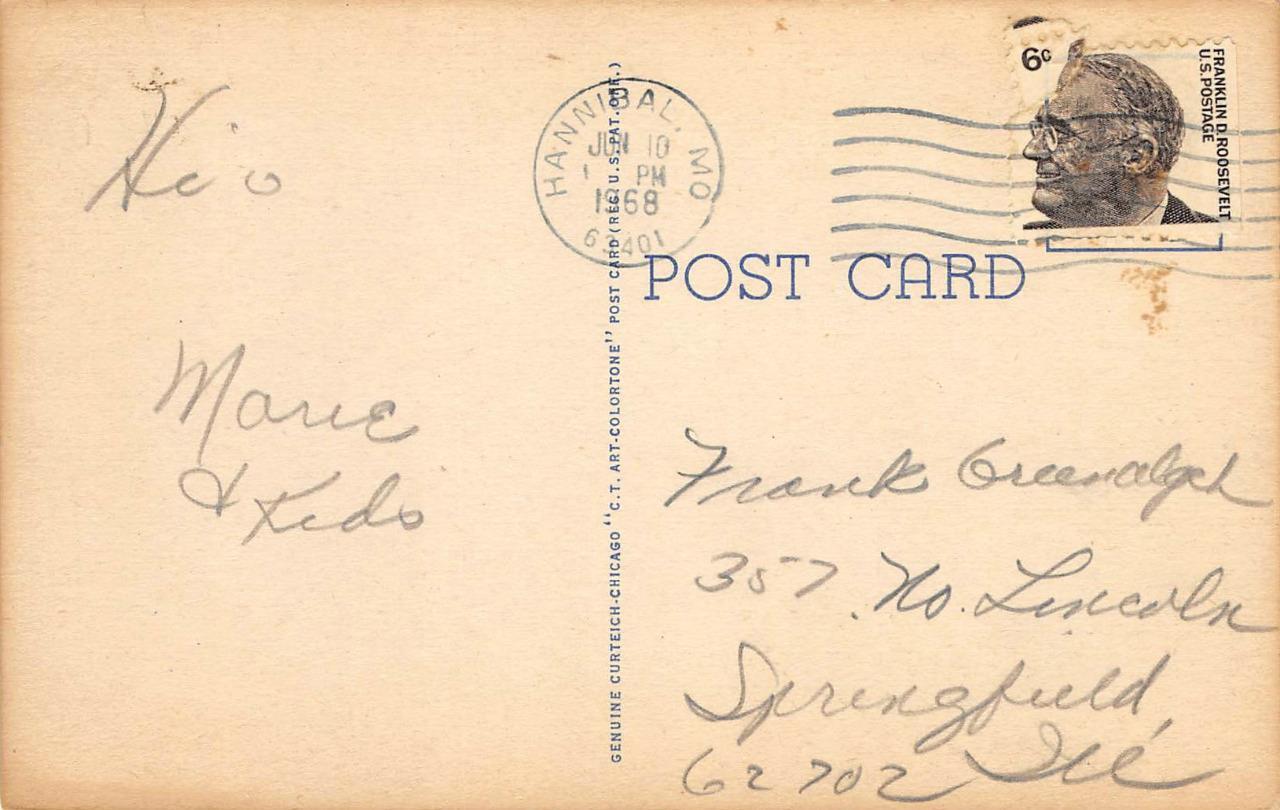 Hi
Marie
& Kids
HANNIBAL, MO
JUN 10
PM
1968
63401
6c
FRANKLIN D. ROOSEVELT
U.S. POSTAGE
GENUINE CURTEICH-CHICAGO "C.T. ART-COLORTONE" POST CARD (REG. U.S. PAT. OFF.)
POST CARD
Frank
357 No. Lincoln
Springfield,
62702 Ill